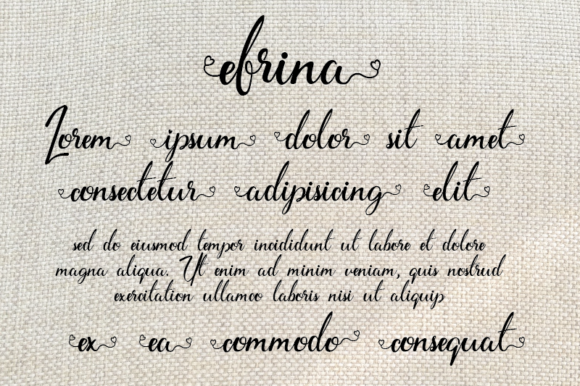 ebrina
Lorem ipsum dolor sit amet
consectetur adipisicing elit
sed do eiusmod tempor incididunt ut labore et dolore
magna aliqua. Ut enim ad minim veniam, quis nostrud
exercitation ullamco laboris nisi ut aliquip
ex ea commodo consequat